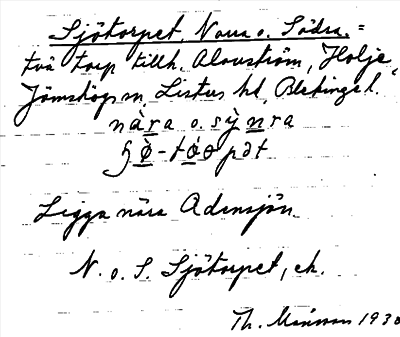 Sjötorpet, Norra o. Södra. =
två torp tillh. Alovström, Holje,
Jämshögs sn, Listers hd, Blekinge l.
nàra o. sỳnra
ʂø̀-tóo pət
Ligga nära Adensjön.
N. o. S. Sjötorpet, ek.
Th. Månsson 1930